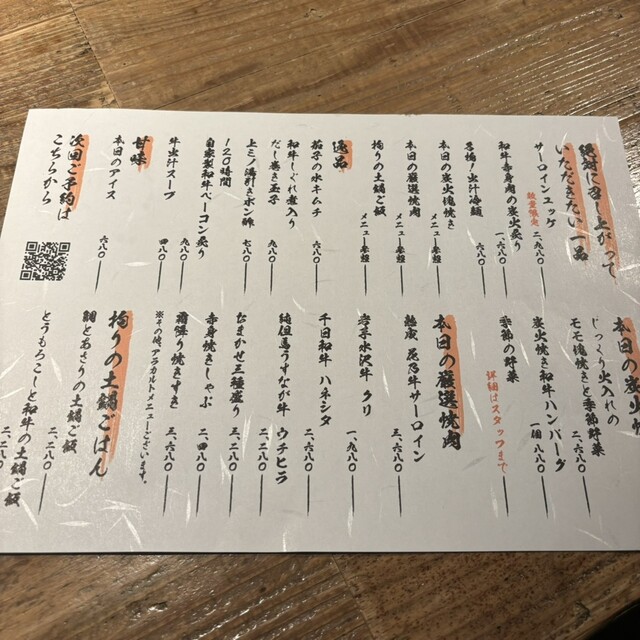 絶対に召し上がって
いただきたい一品
サーロインユッケ
数量限定
二、九八〇
和牛赤身肉の炭火炙り
一、六八〇
名物！出汁冷麺
六八〇
本日の炭火塊焼き
メニュー参照
本日の厳選焼肉
メニュー参照
拘りの土鍋ご飯
メニュー参照
逸品
茄子の水キムチ
六八〇
和牛しぐれ煮入り
だし巻き玉子
九八〇
上ミノ湯引きポン酢
七八〇
120時間
自家製和牛ベーコン炙り
九八〇
牛出汁スープ
四八〇
甘味
本日のアイス
六八〇
次回ご予約は
こちらから
本日の炭火
じっくり火入れの
モモ塊焼きと季節野菜
二、六八〇
炭火焼き和牛ハンバーグ
一個 八八〇
季節の野菜
詳細はスタッフまで
本日の厳選焼肉
熟成 尾乃牛サーロイン
三、六八〇
岩手水沢牛 クリ
一、九八〇
千日和牛 ハネシタ
純但馬うすなが牛 ウチヒラ
二、二八〇
おまかせ三種盛り
三、二八〇
赤身焼きしゃぶ
二、四八〇
霜降り焼きすき
三、二八〇
※その他、アラカルトメニューございます。
拘りの土鍋ごはん
鯛とあさりの土鍋ご飯
二、二八〇
とうもろこしと和牛の土鍋ご飯
二、二八〇